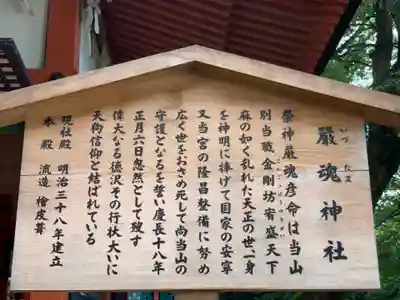 嚴魂神社
いづ たま
祭神厳魂彦命は当山
別当職金剛坊宥盛天下
麻の如く乱れた天正の世一身
を神明に捧げて国家の安寧
又当宮の隆昌整備に努め
広く世をおさめ死して尚当山の
守護となるを誓い慶長十八年
正月六日忽然として歿す
偉大なる徳沢その行状大いに
天狗信仰と結ばれている
現社殿 明治三十八年建立
本殿 流造 檜皮葺